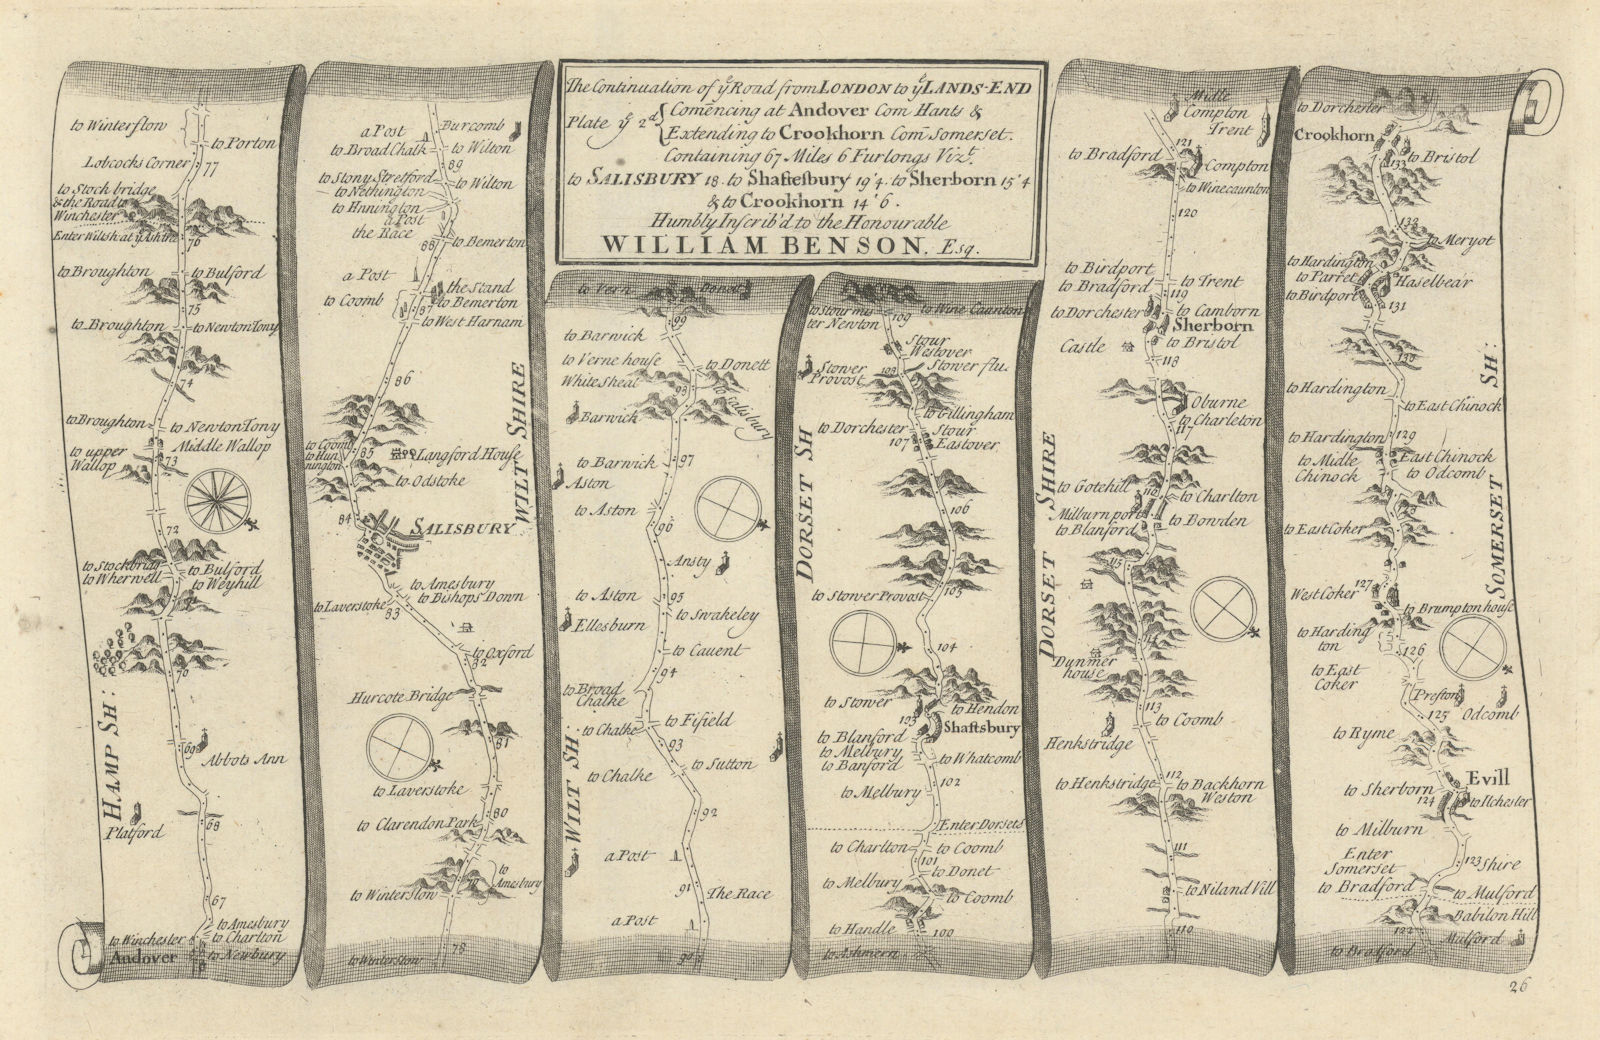 The Continuation of yͤ Road from LONDON to yͤ LANDS-END
Plate yͤ 2ᵈ
Com̄encing at Andover Com Hants &
Extending to Crookhorn Com Somerset.
Containing 67 Miles 6 Furlongs Vizᵗ.
to SALISBURY 18. to Shaftesbury 19'4. to Sherborn 15'4
& to Crookhorn 14'6.
Humbly Inscrib'd to the Honourable
WILLIAM BENSON. Esq.
to Winterflow
to Porton
Lobcocks Corner
77
to Stock bridge
& the Road to
Winchester
Enter Wiltsh at yͤ Ashtree
76
to Broughton
to Bulford
75
to Broughton
to Newton Tony
74
to Broughton
to Newton Tony
Middle Wallop
to upper
Wallop
73
72
to Stockbridg
to Bulford
to Wherwell
to Weyhill
71
70
HAMP SH:
69
Abbots Ann
Platford
68
67
to Amesbury
to Winchester
to Charlton
Andover
to Newbury
a Post
Burcomb
to Broad Chalk
to Wilton
89
to Stony Stretford
to Wilton
to Nethington
to Hnnington
a Post
the Race
88
to Bemerton
a Post
the Stand
to Coomb
to Bemerton
87
to West Harnam
86
WILT SHIRE
to Coomb
to Hun
nington
85
Langford House
to Odstoke
84
SALISBURY
to Amesbury
to Bishops Down
to Laverstoke
83
to Oxford
82
Hurcote Bridge
81
to Laverstoke
80
to Clarendon Park
79
to
Amesbury
to Winterslow
78
to Winterslow
to Vern
Donett
99
to Barwick
to Verne house
to Donett
White Sheat
98
to Salisbury
Barwick
to Barwick
97
Aston
to Aston
96
Ansty
to Aston
95
to Swakeley
Ellesburn
to Cauent
94
to Broad
Chalke
to Chalke
to Fifield
93
to Sutton
to Chalke
WILT SH:
92
a Post
91
The Race
a Post
90
to Stourmis
ter Newton
109
to Wine Caunton
Stour
Westover
Stower flu.
Stower
Provost
108
to Gillingham
to Dorchester
Stour
Eastover
107
DORSET SH
106
to Stower Provost
105
104
to Stower
to Hendon
103
Shaftsbury
to Blanford
to Melbury
to Banford
to Whatcomb
102
to Melbury
Enter Dorsets
to Charlton
to Coomb
101
to Donet
to Melbury
to Coomb
to Handle
100
to Ashmern
Midle
Compton
Trent
121
to Bradford
Compton
to Winecaunton
120
to Birdport
to Bradford
to Trent
119
to Dorchester
to Camborn
Sherborn
Castle
to Bristol
118
Oburne
to Charleton
117
DORSET SHIRE
to Gotehill
116
to Charlton
Milburn port
to Bowden
to Blanford
115
114
Dunmer
house
113
to Coomb
Henkstridge
112
to Henkstridge
to Backhorn
Weston
111
to Niland Vill
110
to Dorchester
Crookhorn
to Bristol
133
132
to Meryot
to Hardington
to Parret
Haselbear
to Birdport
131
130
to Hardington
to East Chinock
SOMERSET SH:
to Hardington
129
East Chinock
to Midle
Chinock
to Odcomb
128
to East Coker
West Coker
127
to Brumpton house
to Harding
ton
126
to East
Coker
Preston
125
Odcomb
to Ryme
Evill
to Sherborn
124
to Ilchester
to Milburn
Enter
Somerset
123
Shire
to Bradford
to Mulford
Babilon Hill
122
Mulford
to Bradford
26